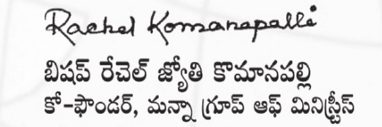 Rachel Komanapalli
బిషప్ రేచెల్ జ్యోతి కొమానపల్లి
కో-ఫౌండర్, మన్నా గ్రూప్ ఆఫ్ మినిస్ట్రీస్